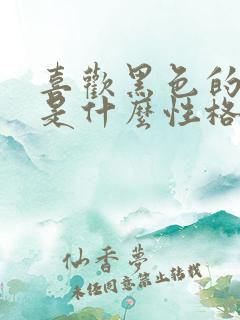 喜歡黑色的
是什麼性格
仙香夢
未經同意禁止轉載